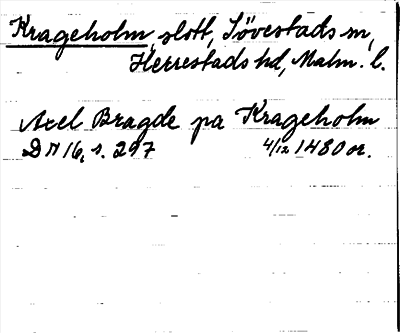 Krageholm, slott, Sövestads sn,
Herrestads hd, Malm. l.
Axel Bragde pa Krageholm
DN 16, s. 297 4/12 1480 or.